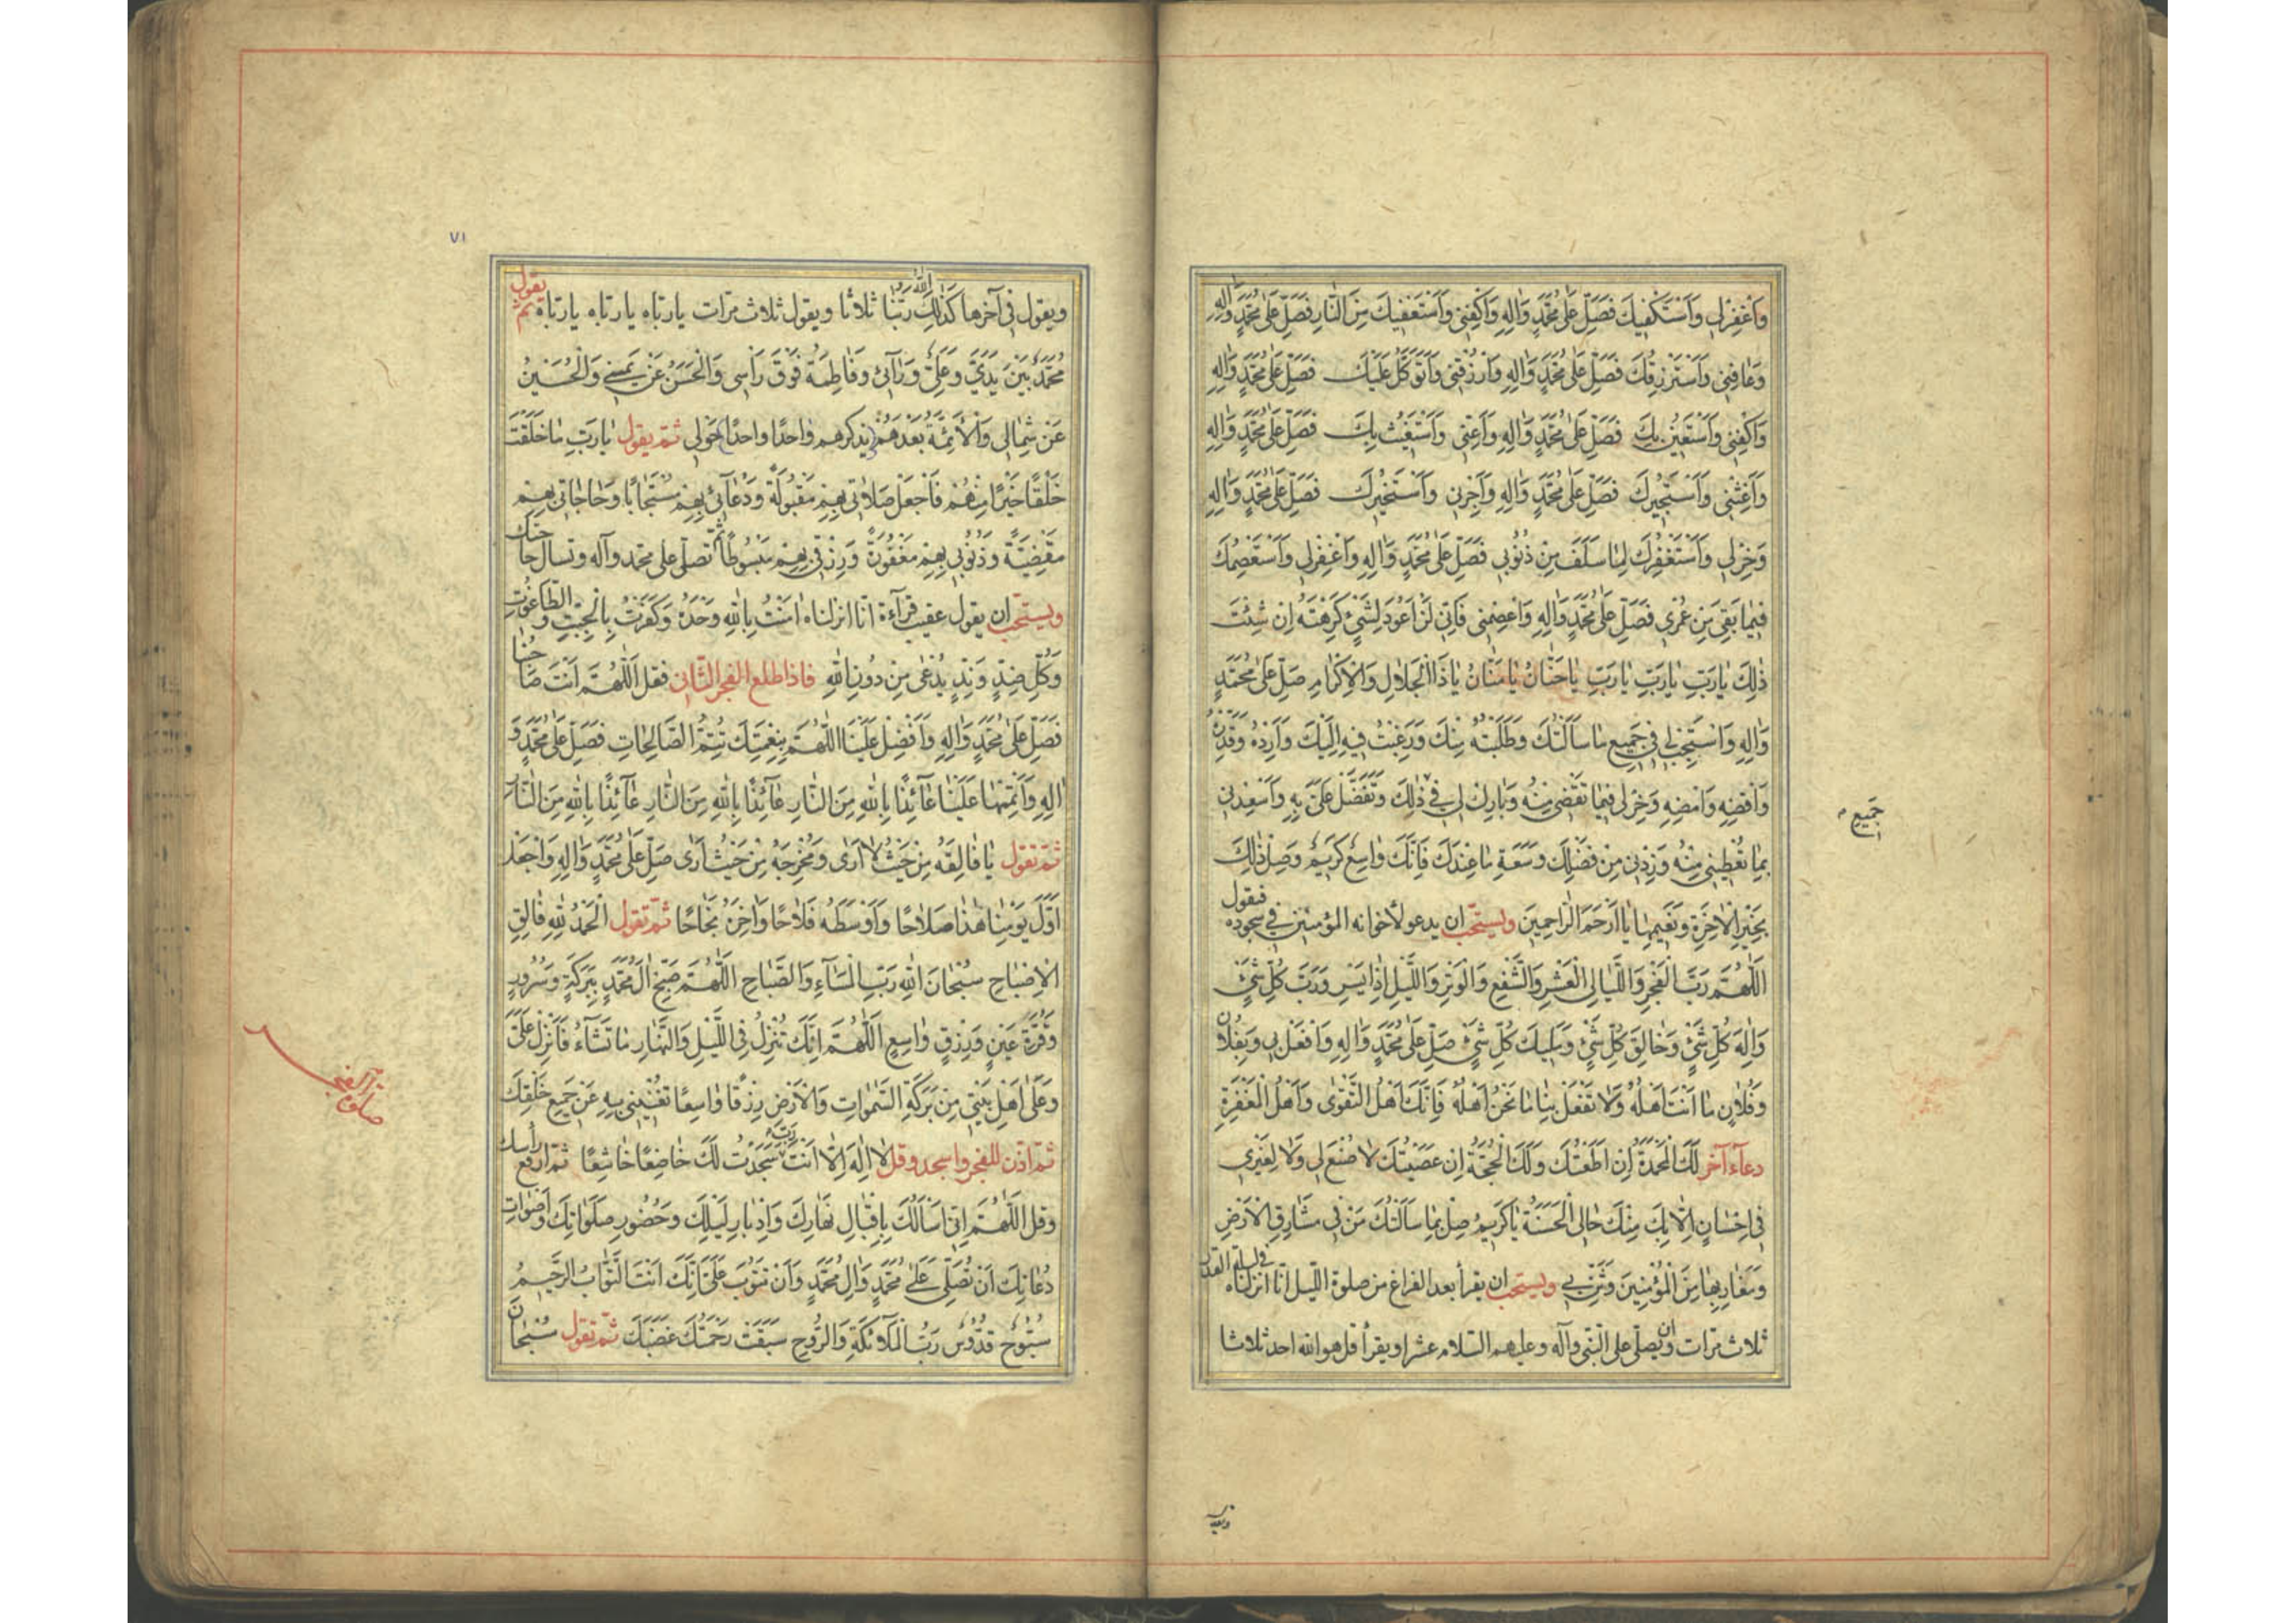 وَاغْفِرْلِي وَاَسْتَكْفِيكَ فَصَلِّ عَلىٰ مُحَمَّدٍ وَاٰلِهِ وَاكْفِنِي وَاَسْتَعْفِيكَ مِنَ النَّارِ فَصَلِّ عَلىٰ مُحَمَّدٍ وَاٰلِهِ
وَعَافِنِي وَاَسْتَرْزِقُكَ فَصَلِّ عَلىٰ مُحَمَّدٍ وَاٰلِهِ وَارْزُقْنِي وَاَتَوَكَّلُ عَلَيْكَ فَصَلِّ عَلىٰ مُحَمَّدٍ وَاٰلِهِ
وَاكْفِنِي وَاَسْتَعِينُ بِكَ فَصَلِّ عَلىٰ مُحَمَّدٍ وَاٰلِهِ وَاَعِنِّي وَاَسْتَغِيثُ بِكَ فَصَلِّ عَلىٰ مُحَمَّدٍ وَاٰلِهِ
وَاَغِثْنِي وَاَسْتَجِيرُكَ فَصَلِّ عَلىٰ مُحَمَّدٍ وَاٰلِهِ وَاَجِرْنِي وَاَسْتَخِيرُكَ فَصَلِّ عَلىٰ مُحَمَّدٍ وَاٰلِهِ
وَخِرْلِي وَاَسْتَغْفِرُكَ لِمَا سَلَفَ مِنْ ذُنُوبِي فَصَلِّ عَلىٰ مُحَمَّدٍ وَاٰلِهِ وَاغْفِرْلِي وَاَسْتَعْصِمُكَ
فِيمَا بَقِيَ مِنْ عُمْرِي فَصَلِّ عَلىٰ مُحَمَّدٍ وَاٰلِهِ وَاعْصِمْنِي فَاِنِّي لَنْ اَعُودَ لِشَيْءٍ كَرِهْتَهُ اِنْ شِئْتَ
ذٰلِكَ يَا رَبِّ يَا رَبِّ يَا رَبِّ يَا حَنَّانُ يَا مَنَّانُ يَا ذَا الْجَلَالِ وَالْاِكْرَامِ صَلِّ عَلىٰ مُحَمَّدٍ
وَاٰلِهِ وَاسْتَجِبْ لِي فِي جَمِيعِ مَا سَاَلْتُكَ وَطَلَبْتُهُ مِنْكَ وَرَغِبْتُ فِيهِ اِلَيْكَ وَاَرِدْهُ وَقَدِّرْهُ
وَاقْضِهِ وَامْضِهِ وَخِرْلِي فِيمَا تَقْضِي مِنْهُ وَبَارِكْ لِي فِي ذٰلِكَ وَتَفَضَّلْ عَلَيَّ بِهِ وَاَسْعِدْنِي
جَمِيعِ
بِمَا تُعْطِينِي مِنْهُ وَزِدْنِي مِنْ فَضْلِكَ وَسَعَةِ مَا عِنْدَكَ فَاِنَّكَ وَاسِعٌ كَرِيمٌ وَصِلْ ذٰلِكَ
بِخَيْرِ الْاٰخِرَةِ وَنَعِيمِهَا يَا اَرْحَمَ الرَّاحِمِينَ ويستحبّ ان يدعو لأخوانه المؤمنين في سجوده فيقول
اَللّٰهُمَّ رَبَّ الْفَجْرِ وَاللَّيَالِي الْعَشْرِ وَالشَّفْعِ وَالْوَتْرِ وَاللَّيْلِ اِذَا يَسْرِ وَرَبَّ كُلِّ شَيْءٍ
وَاِلٰهَ كُلِّ شَيْءٍ وَخَالِقَ كُلِّ شَيْءٍ وَمَلِيكَ كُلِّ شَيْءٍ صَلِّ عَلىٰ مُحَمَّدٍ وَاٰلِهِ وَافْعَلْ بِي وَبِفُلَانٍ
وَفُلَانٍ مَا اَنْتَ اَهْلُهُ وَلَا تَفْعَلْ بِنَا مَا نَحْنُ اَهْلُهُ فَاِنَّكَ اَهْلُ التَّقْوٰى وَاَهْلُ الْمَغْفِرَةِ
دعاء آخر لَكَ الْمَحْمَدَةُ اِنْ اَطَعْتُكَ وَلَكَ الْحُجَّةُ اِنْ عَصَيْتُكَ لَا صُنْعَ لِي وَلَا لِغَيْرِي
فِي اِحْسَانٍ اِلَّا بِكَ مِنْكَ حَالِي الْحَسَنَةُ يَا كَرِيمُ صِلْ بِمَا سَاَلْتُكَ مَنْ فِي مَشَارِقِ الْاَرْضِ
وَمَغَارِبِهَا مِنَ الْمُؤْمِنِينَ وَثَنِّ بِي ويستحبّ ان يقرأ بعد الفراغ من صلوة اللّيل انّا انزلناه في ليلة القدر
ثلاث مرّات وان يصلّي على النّبي وآله وعليهم السّلام عشرا ويقرأ قل هو الله احد ثلاثا
٧١
ويقول في آخرها كَذٰلِكَ اللهُ رَبُّنَا ثلاثا ويقول ثلاث مرّات يا ربّاه يا ربّاه يا ربّاه ثم يقول
مُحَمَّدٌ بَيْنَ يَدَيَّ وَعَلِيٌّ وَرَائِي وَفَاطِمَةُ فَوْقَ رَأْسِي وَالْحَسَنُ عَنْ يَمِينِي وَالْحُسَيْنُ
عَنْ شِمَالِي وَالْاَئِمَّةُ بَعْدَهُمْ (يذكرهم واحدًا واحدًا) حَوْلِي ثمّ يقول يَا رَبِّ مَا خَلَقْتَ
خَلْقًا خَيْرًا مِنْهُمْ فَاجْعَلْ صَلَاتِي بِهِمْ مَقْبُولَةً وَدُعَائِي بِهِمْ مُسْتَجَابًا وَحَاجَاتِي بِهِمْ
مَقْضِيَّةً وَذُنُوبِي بِهِمْ مَغْفُورَةً وَرِزْقِي بِهِمْ مَبْسُوطًا ثم تصلّي على محمّد وآله وتسأل حاجتك
ويستحبّ ان يقول عقيب قراءة انّا انزلناه اٰمَنْتُ بِاللهِ وَحْدَهُ وَكَفَرْتُ بِالْجِبْتِ وَالطَّاغُوتِ
وَكُلِّ ضِدٍّ وَنِدٍّ يُدْعىٰ مِنْ دُونِ اللهِ فاذا طلع الفجر الثّاني فقل اَللّٰهُمَّ اَنْتَ صَاحِبُنَا
فَصَلِّ عَلىٰ مُحَمَّدٍ وَاٰلِهِ وَاَفْضِلْ عَلَيْنَا اَللّٰهُمَّ بِنِعْمَتِكَ تَتِمُّ الصَّالِحَاتُ فَصَلِّ عَلىٰ مُحَمَّدٍ وَ
اٰلِهِ وَاَتْمِمْهَا عَلَيْنَا عَائِذًا بِاللهِ مِنَ النَّارِ عَائِذًا بِاللهِ مِنَ النَّارِ عَائِذًا بِاللهِ مِنَ النَّارِ
ثمّ تقول يَا فَالِقَهُ مِنْ حَيْثُ لَا اَرٰى وَمُخْرِجَهُ مِنْ حَيْثُ اَرٰى صَلِّ عَلىٰ مُحَمَّدٍ وَاٰلِهِ وَاجْعَلْ
اَوَّلَ يَوْمِنَا هٰذَا صَلَاحًا وَاَوْسَطَهُ فَلَاحًا وَاٰخِرَهُ نَجَاحًا ثمّ تقول اَلْحَمْدُ لِلّٰهِ فَالِقِ
الْاِصْبَاحِ سُبْحَانَ اللهِ رَبِّ الْمَسَاءِ وَالصَّبَاحِ اَللّٰهُمَّ صَبِّحْ اٰلَ مُحَمَّدٍ بِبَرَكَةٍ وَسُرُورٍ
وَقُرَّةِ عَيْنٍ وَرِزْقٍ وَاسِعٍ اَللّٰهُمَّ اِنَّكَ تُنْزِلُ فِي اللَّيْلِ وَالنَّهَارِ مَا تَشَاءُ فَاَنْزِلْ عَلَيَّ
وَعَلىٰ اَهْلِ بَيْتِي مِنْ بَرَكَةِ السَّمٰوَاتِ وَالْاَرْضِ رِزْقًا وَاسِعًا تُغْنِينِي بِهِ عَنْ جَمِيعِ خَلْقِكَ
ثمّ اذّن للفجر واسجد وقل لَا اِلٰهَ اِلَّا اَنْتَ رَبِّي سَجَدْتُ لَكَ خَاضِعًا خَاشِعًا ثمّ ارفع رأسك
وقل اَللّٰهُمَّ اِنِّي اَسْاَلُكَ بِاِقْبَالِ نَهَارِكَ وَاِدْبَارِ لَيْلِكَ وَحُضُورِ صَلَوَاتِكَ وَاَصْوَاتِ
دُعَائِكَ اَنْ تُصَلِّيَ عَلىٰ مُحَمَّدٍ وَاٰلِ مُحَمَّدٍ وَاَنْ تَتُوبَ عَلَيَّ اِنَّكَ اَنْتَ التَّوَّابُ الرَّحِيمُ
سُبُّوحٌ قُدُّوسٌ رَبُّ الْمَلَائِكَةِ وَالرُّوحِ سَبَقَتْ رَحْمَتُكَ غَضَبَكَ ثمّ تقول سُبْحَانَ